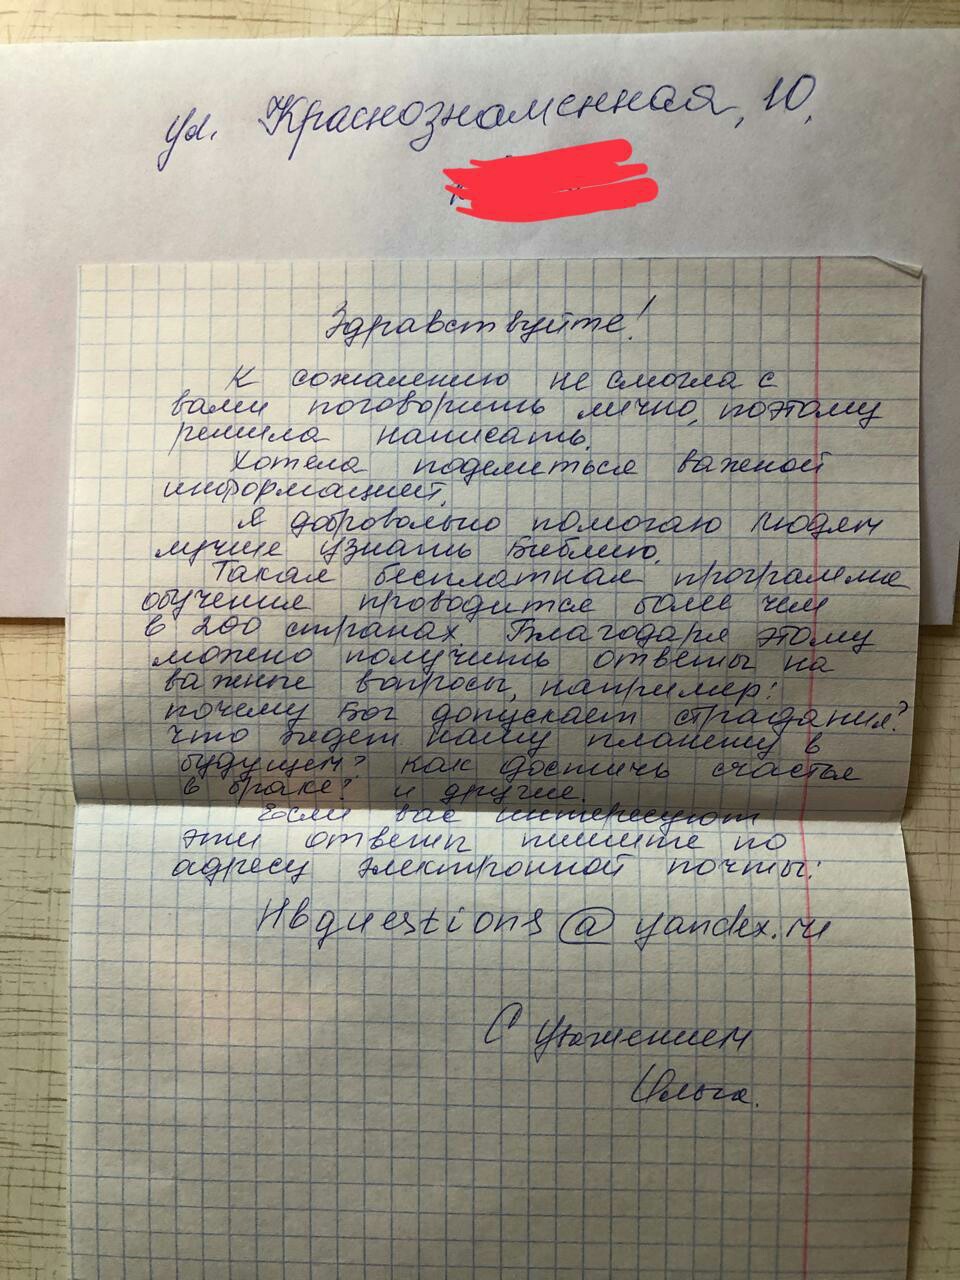 ул. Краснознаменная, 10,
Здравствуйте!
К сожалению не смогла с
вами поговорить лично, поэтому
решила написать.
Хотела поделиться важной
информацией.
Я добровольно помогаю людям
лучше узнать Библию.
Такая бесплатная программа
обучения проводится более чем
в 200 странах. Благодаря этому
можно получить ответы на
важные вопросы, например:
почему Бог допускает страдания?
что ждет нашу планету в
будущем? как достичь счастья
в браке? и другие.
Если вас интересуют
эти ответы пишите по
адресу электронной почты:
Hbquestions@yandex.ru
С уважением
Ольга.